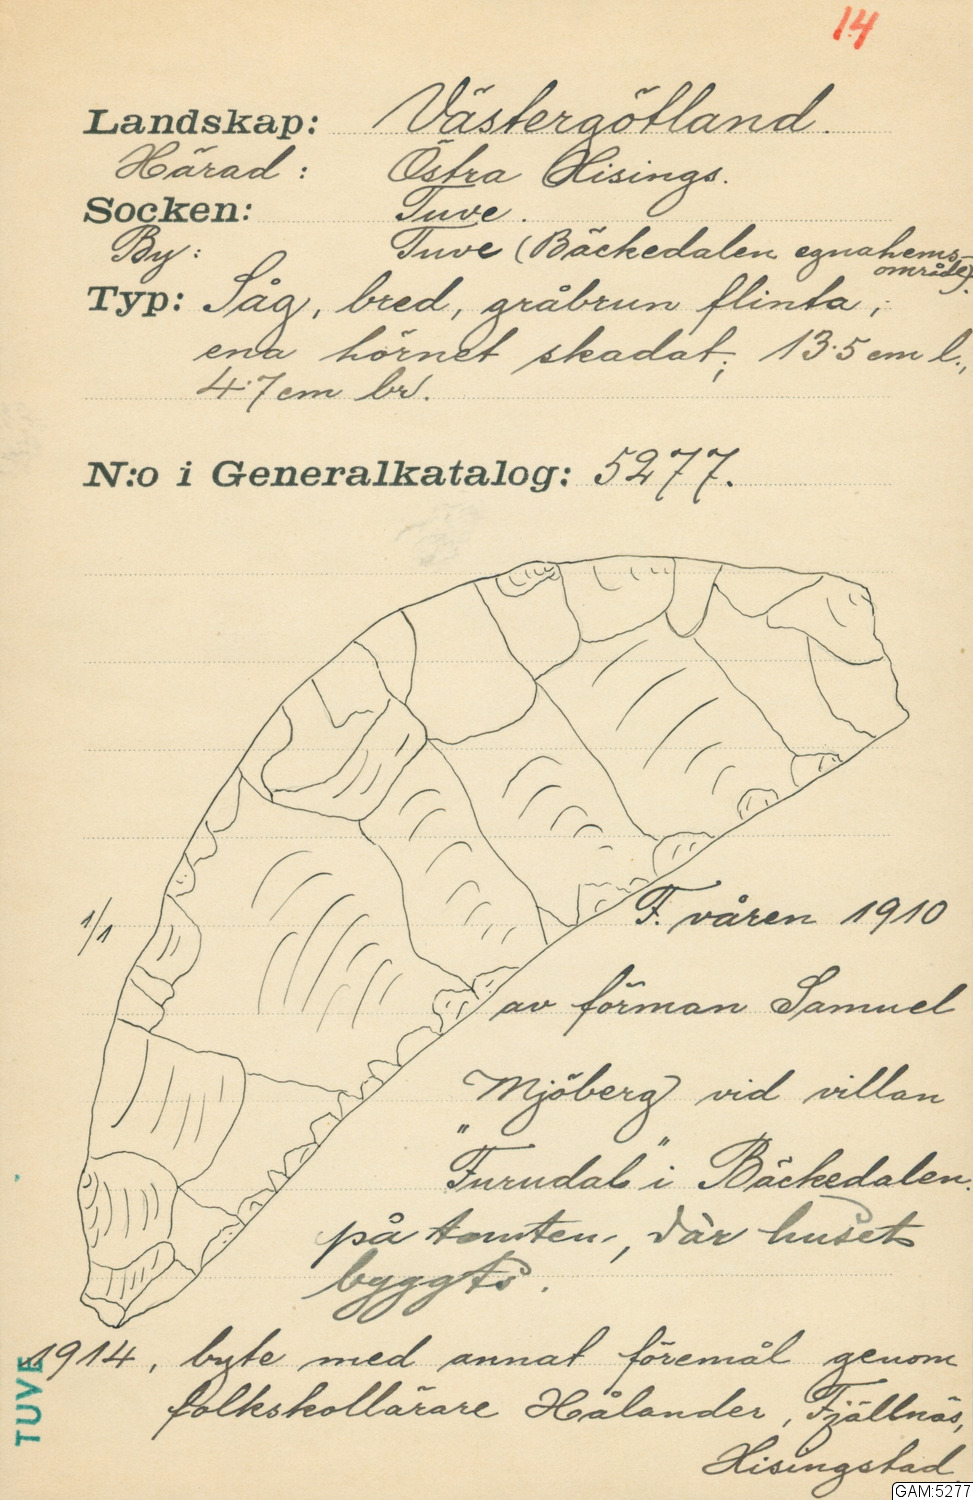 14
Landskap: Västergötland.
Härad: Östra Hisings.
Socken: Tuve.
By: Tuve (Bäckedalen egnahems-
område).
Typ: Såg, bred, gråbrun flinta,
ena hörnet skadat; 13.5 cm l.,
4.7 cm br.
N:o i Generalkatalog: 5277.
1/1
F. våren 1910
av förman Samuel
Mjöberg vid villan
"Furudal" i Bäckedalen.
på tomten, där huset
byggts.
1914, byte med annat föremål genom
folkskollärare Hålander, Fjällnäs,
Hisingstad
TUVE
GAM:5277